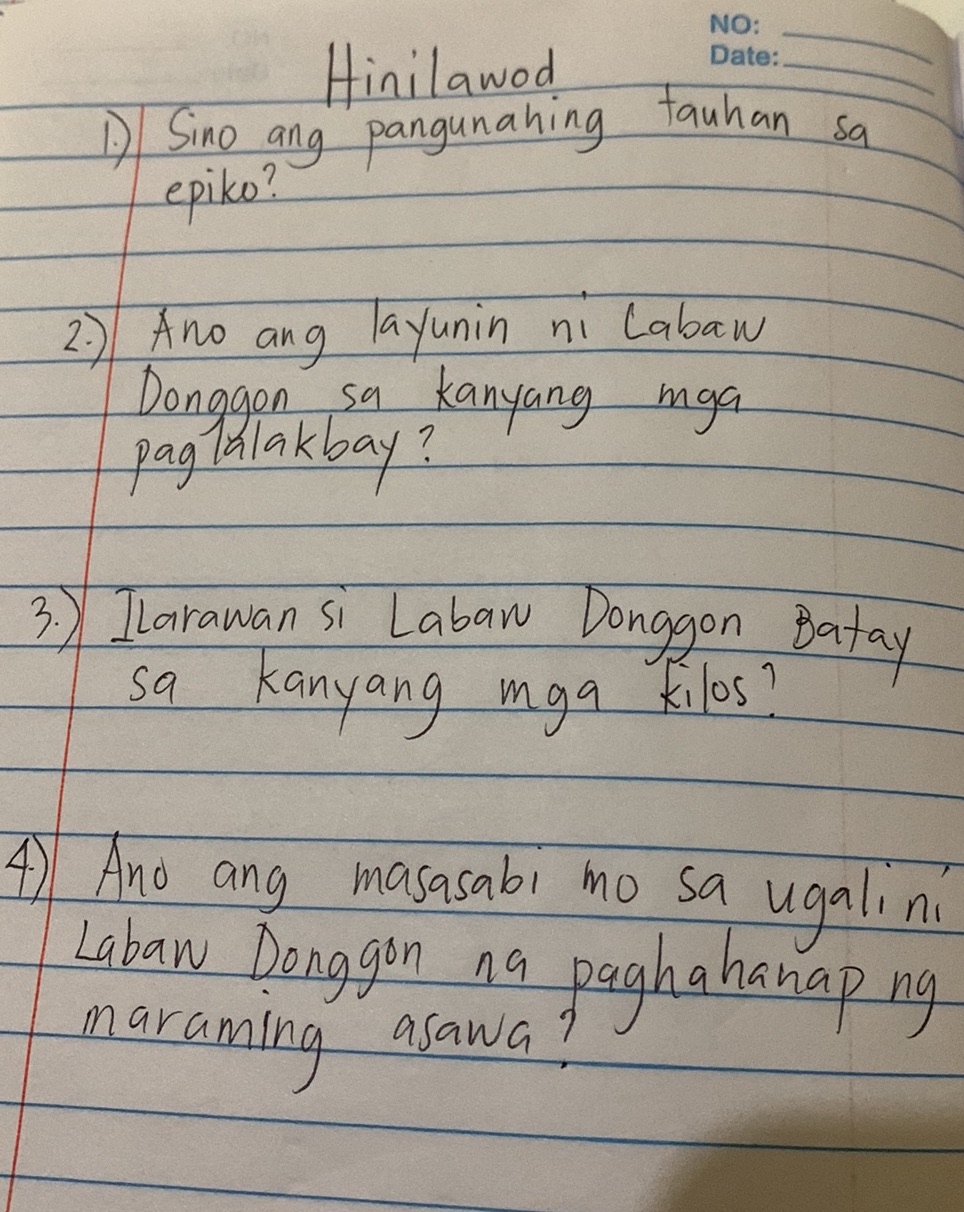 NO:
Date:
Hinilawod
1.) Sino ang pangunahing tauhan sa
epiko?
2.) Ano ang layunin ni Labaw
Donggon sa kanyang mga
paglalakbay?
3.) Ilarawan si Labaw Donggon Batay
sa kanyang mga kilos?
4.) Ano ang masasabi mo sa ugali ni
Labaw Donggon na paghahanap ng
maraming asawa?